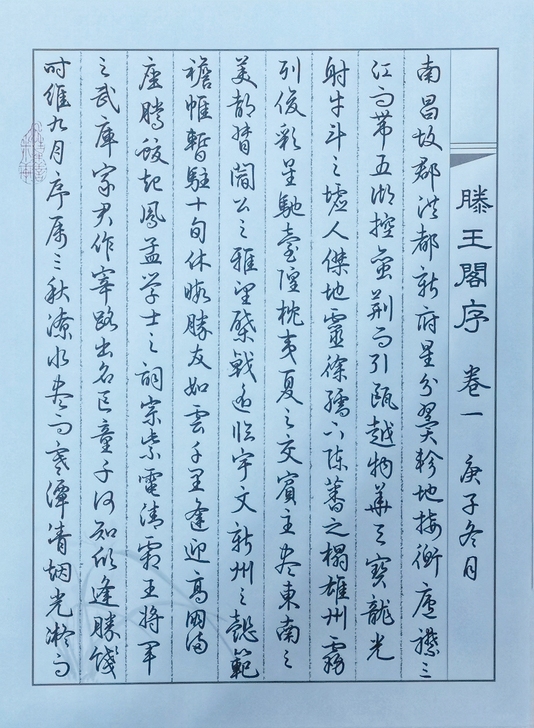 滕王閣序 卷一 庚子冬月
南昌故郡洪都新府星分翼軫地接衡廬襟三
江而帶五湖控蛮荆而引甌越物華天寶龍光
射牛斗之墟人傑地靈徐孺下陈蕃之榻雄州霧
列俊彩星馳臺隍枕夷夏之交賓主尽東南之
美都督閻公之雅望棨戟遥临宇文新州之懿範
襜帷暫駐十旬休暇勝友如雲千里逢迎高朋满
座腾蛟起鳳孟学士之詞宗紫電清霜王將軍
之武庫家君作宰路出名区童子何知躬逢勝餞
时維九月序属三秋潦水尽而寒潭清烟光凝而